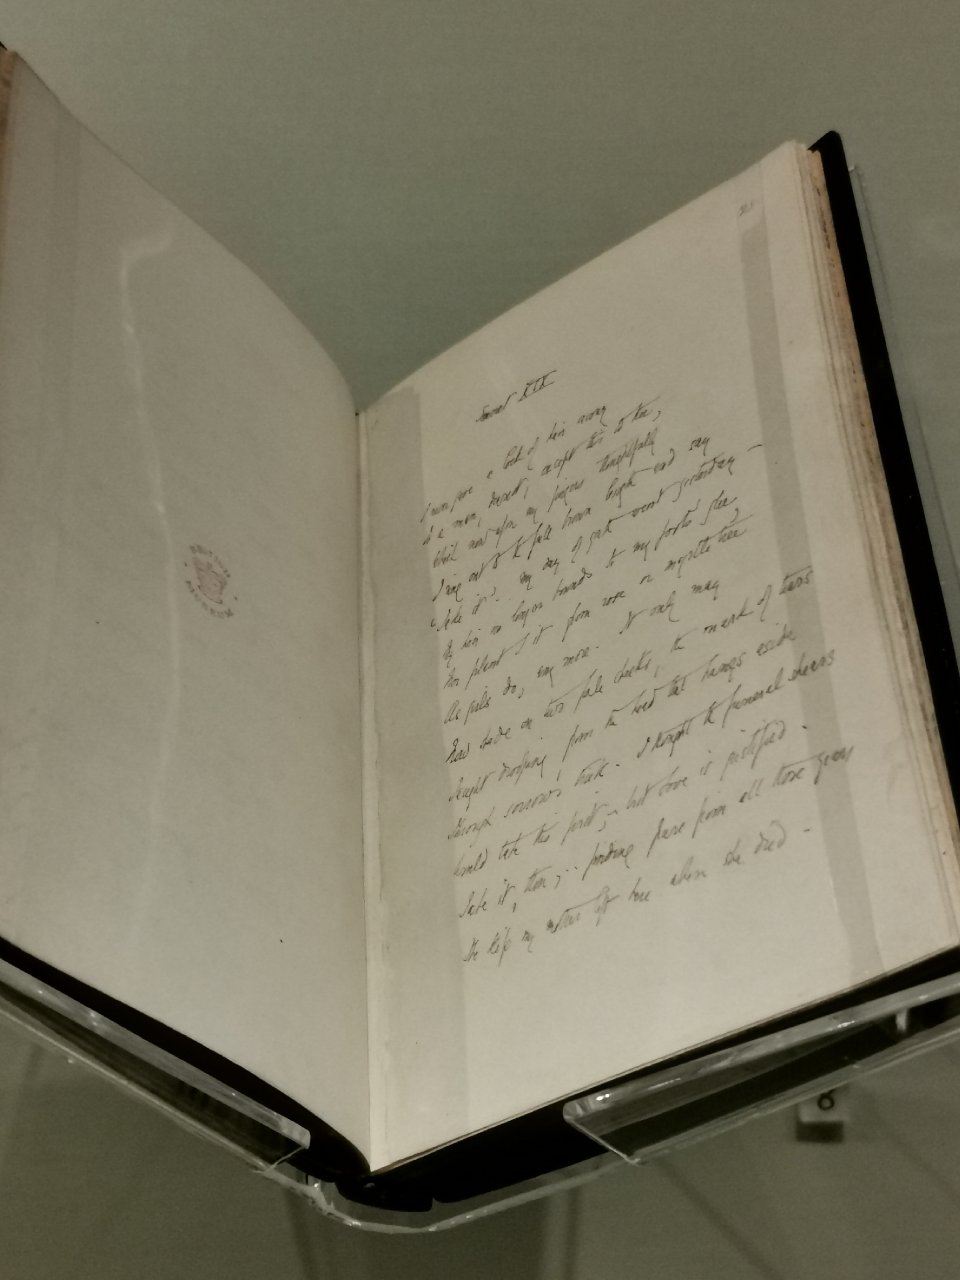 BRITISH MUSEUM
Sonnet XIX
I never gave a lock of hair away
To a man, Dearest, except this to thee,
Which now upon my fingers thoughtfully
I ring out to the full brown length and say
'Take it'.. my day of youth went yesterday –
My hair no longer bounds to my foot's glee,
Nor plant I it from rose or myrtle tree
As girls do, any more. It only may
Now shade on two pale cheeks, the mark of tears
Taught drooping from the head that hangs aside
Through sorrow's trick. I thought the funeral shears
Would take this first;.. but Love is justified.
Take it, thou,.. finding pure from all those years
The kiss my mother left here when she died –
8